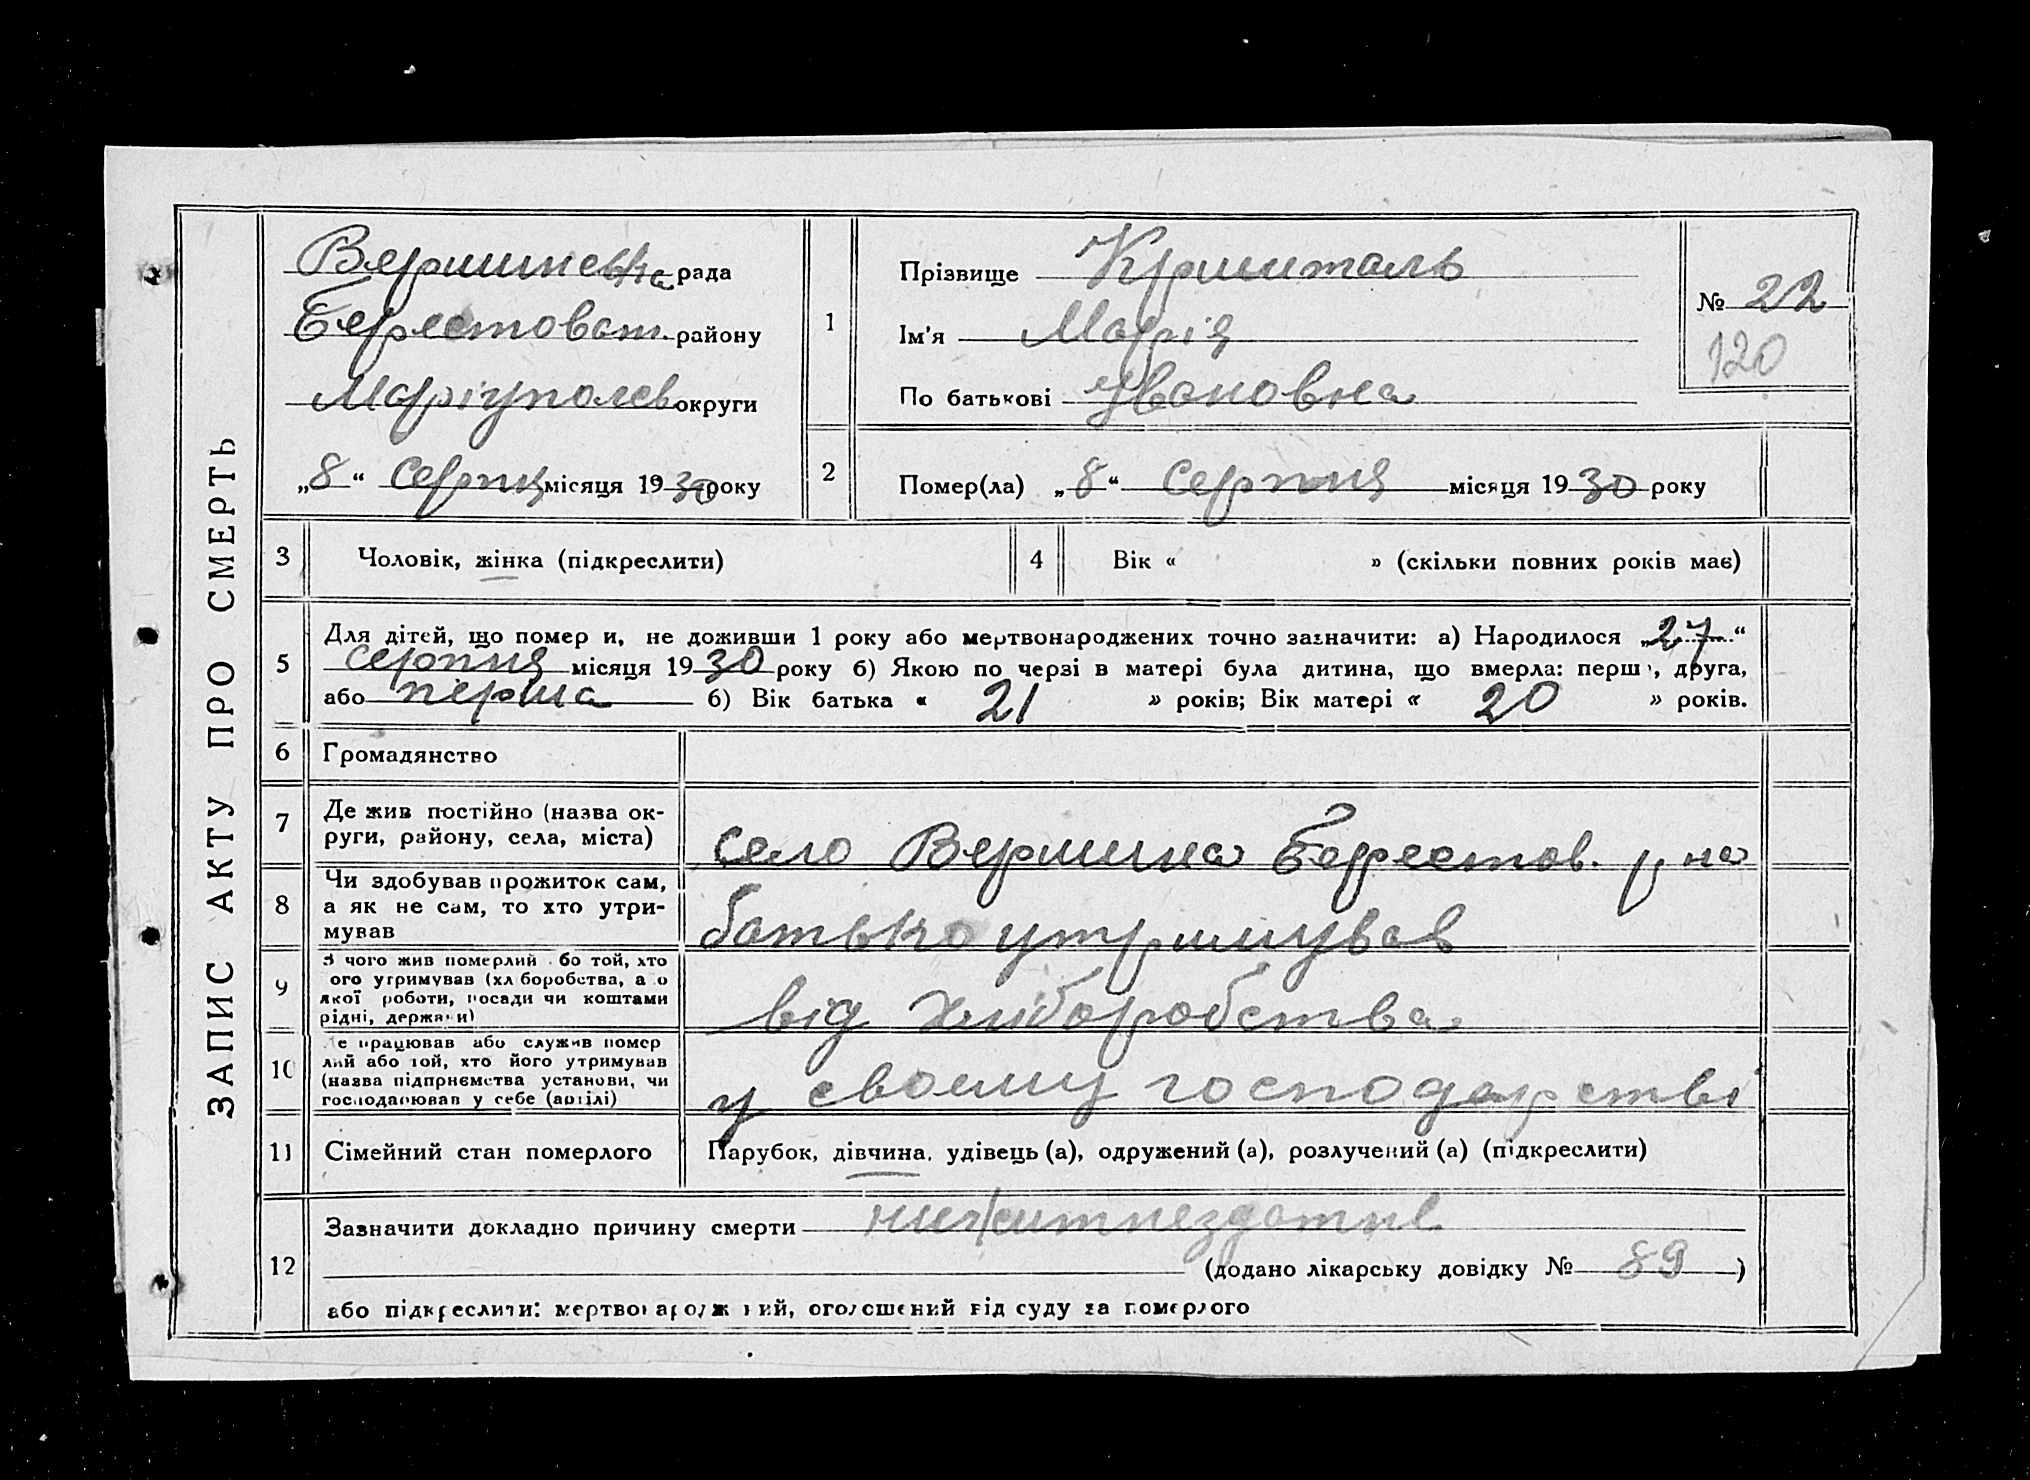 ЗАПИС АКТУ ПРО СМЕРТЬ
Вершинська рада
Берестоват. району
Маріуполев округи
„8“ серпня місяця 1930 року
1
Прізвище Кришталь
Ім'я Марія
По батькові Ивановна
№ 22
120
2
Помер(ла) „8“ серпня місяця 1930 року
3 Чоловік, жінка (підкреслити)
4 Вік « » (скільки повних років має)
5 Для дітей, що помер и, не доживши 1 року або мертвонароджених точно зазначити: а) Народилося „27“
серпня місяця 1930 року б) Якою по черзі в матері була дитина, що вмерла: перш, друга,
або перша б) Вік батька « 21 » років; Вік матері « 20 » років.
6 Громадянство
7 Де жив постійно (назва ок-
руги, району, села, міста)
село Вершина Берестов. р-на
8 Чи здобував прожиток сам,
а як не сам, то хто утри-
мував
батько утримував
9 З чого жив померлий або той, хто
ого утримував (хліборобства, або
якої роботи, посади чи коштами
рідні, держави)
від хліборобства
10 Де працював або служив помер
лий або той, хто його утримував
(назва підприємства установи, чи
господарював у себе (артілі)
у своему господарстві
11 Сімейний стан померлого
Парубок, дівчина, удівець (а), одружений (а), розлучений (а) (підкреслити)
12 Зазначити докладно причину смерти
(додано лікарську довідку № 89)
або підкреслити: мертвонароджений, оголошений від суду за померлого